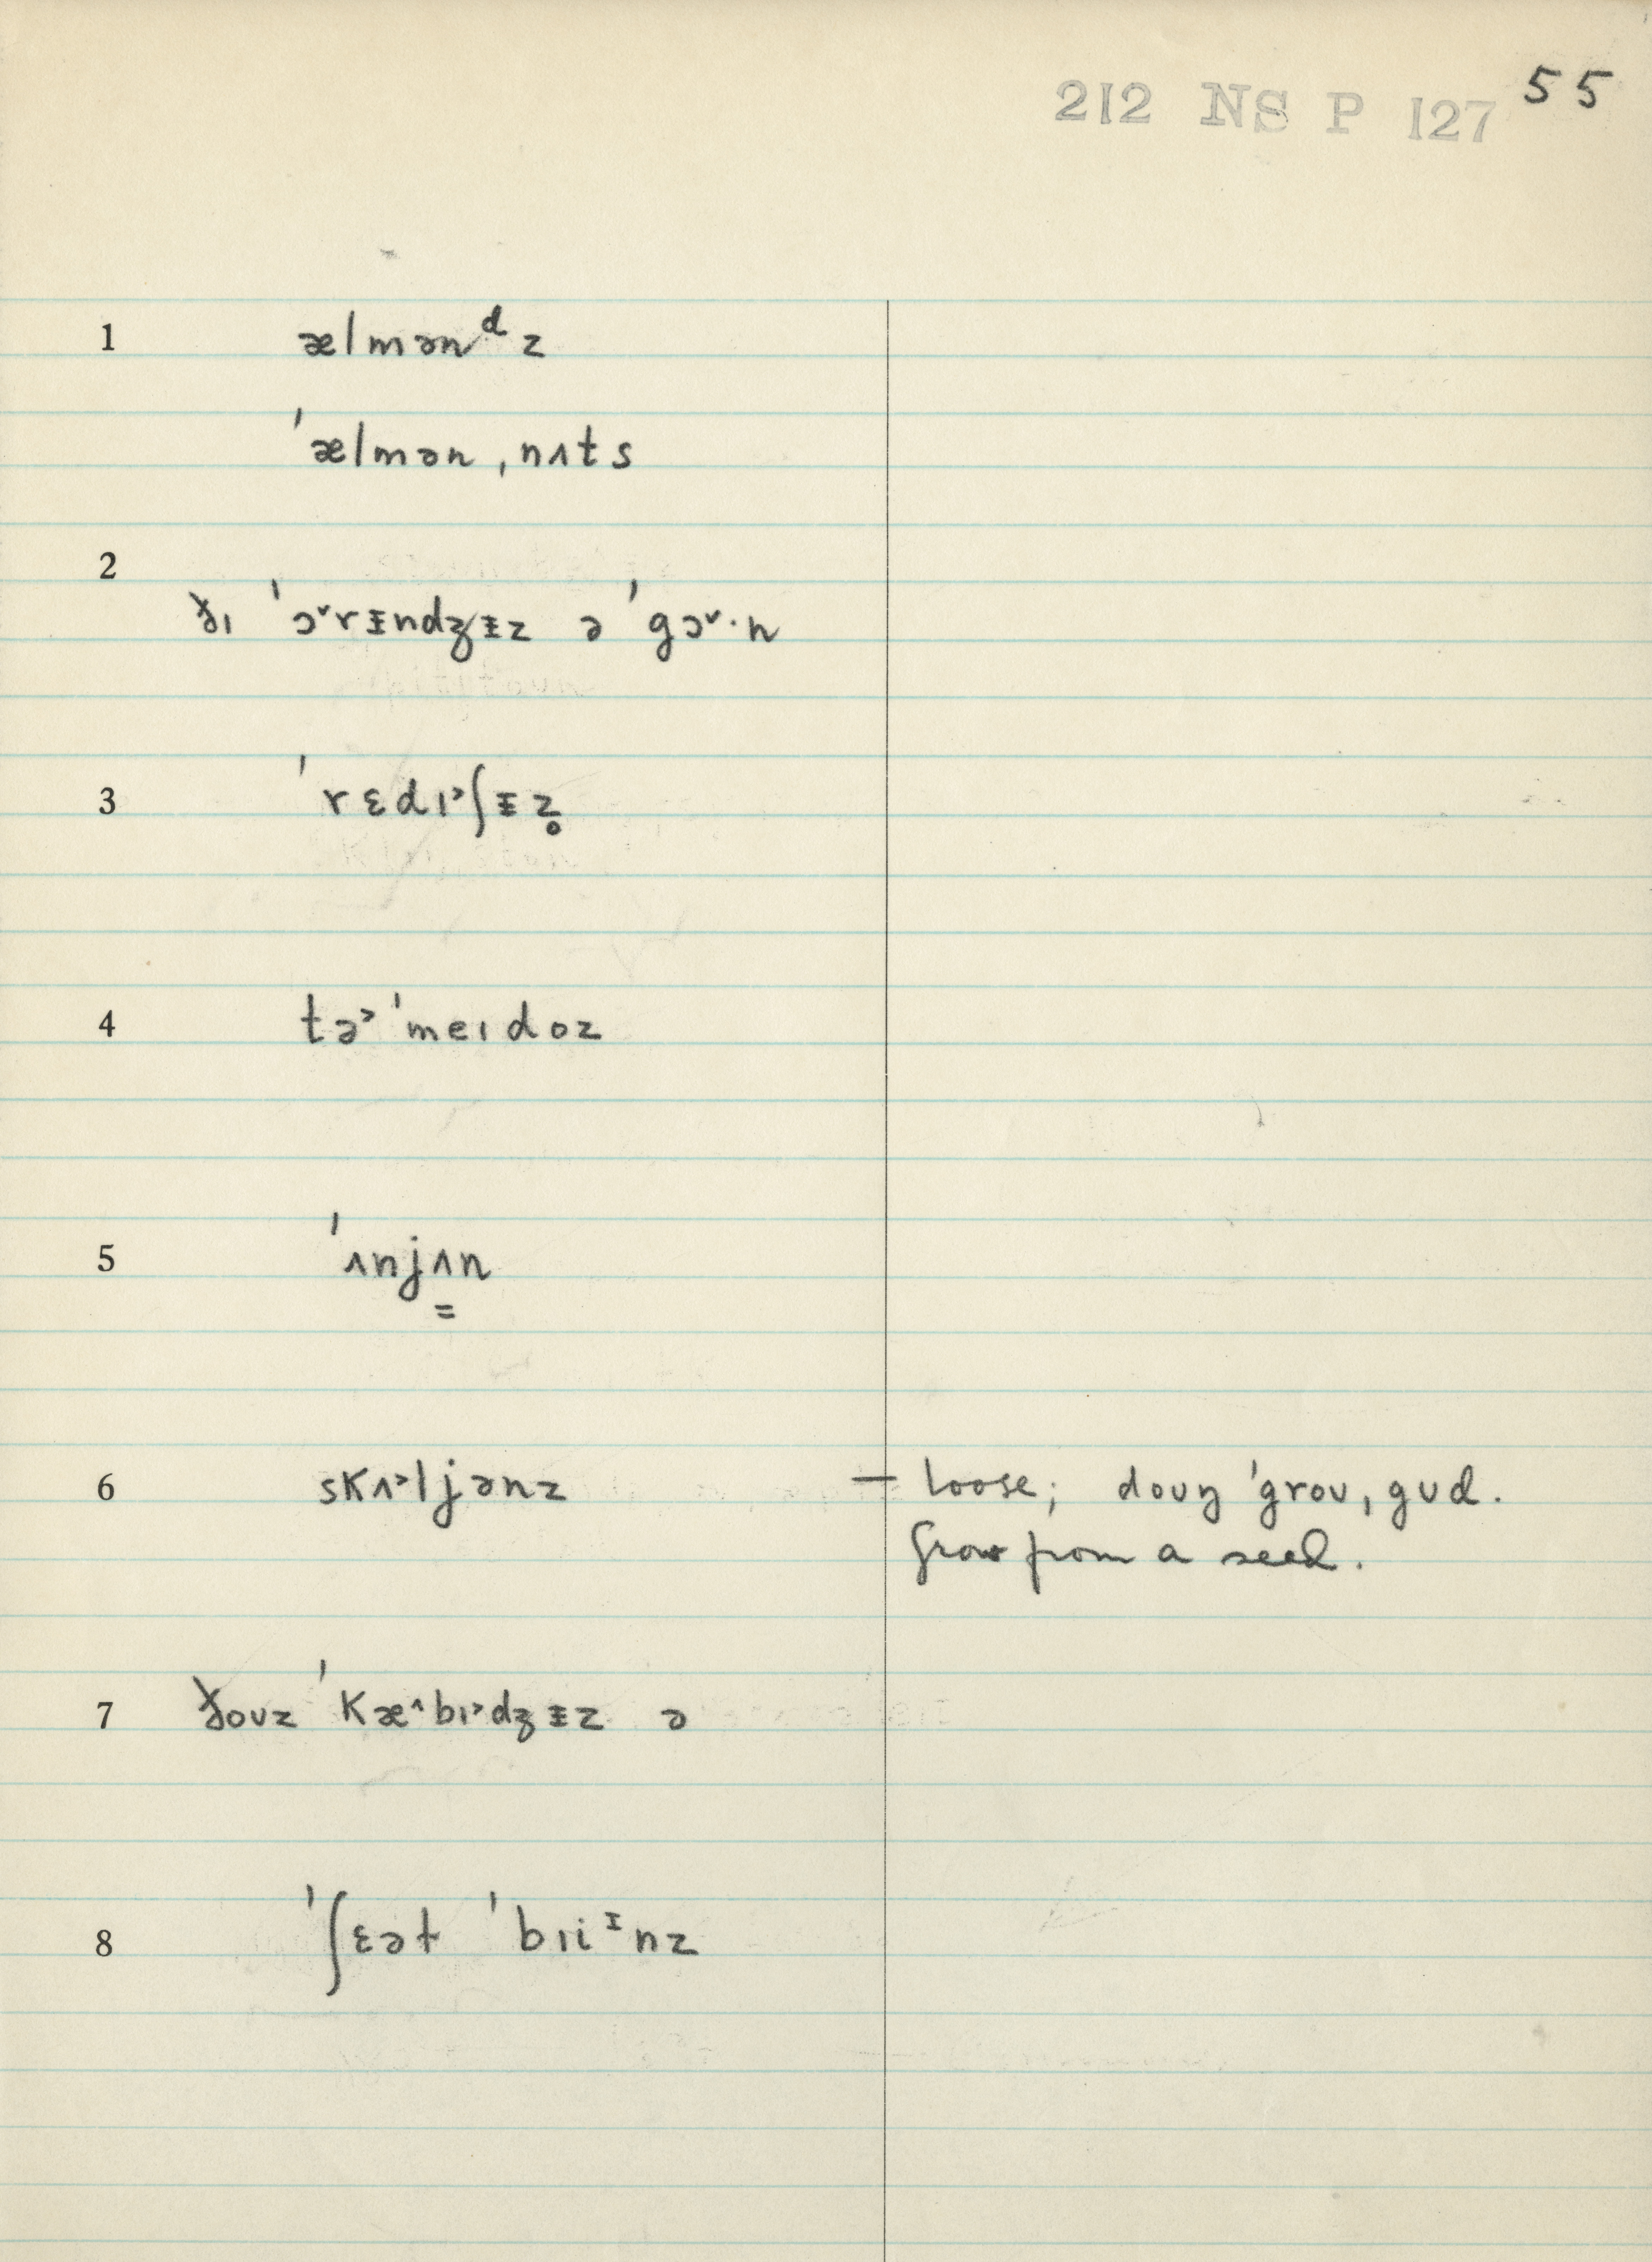 212 NS P 127 55
1 ælmənᵈz
ˈælmənˌnʌts
2
ðɪ ˈɔ˅rᵻndʒᵻz ə ˈgɔ˅·n
3 ˈrɛdɪ˃ʃᵻz̥
4 tə˃ˈmeɪdoz
5 ˈʌnjʌ͇n
6 skʌ˃ljənz — loose; doʊŋ ˈgroʊˌgʊd.
Grow from a seed.
7 ðoʊz ˈkæ˄bɪ˃dʒᵻz ə
8 ˈʃɛət ˈbɪiᶦnz